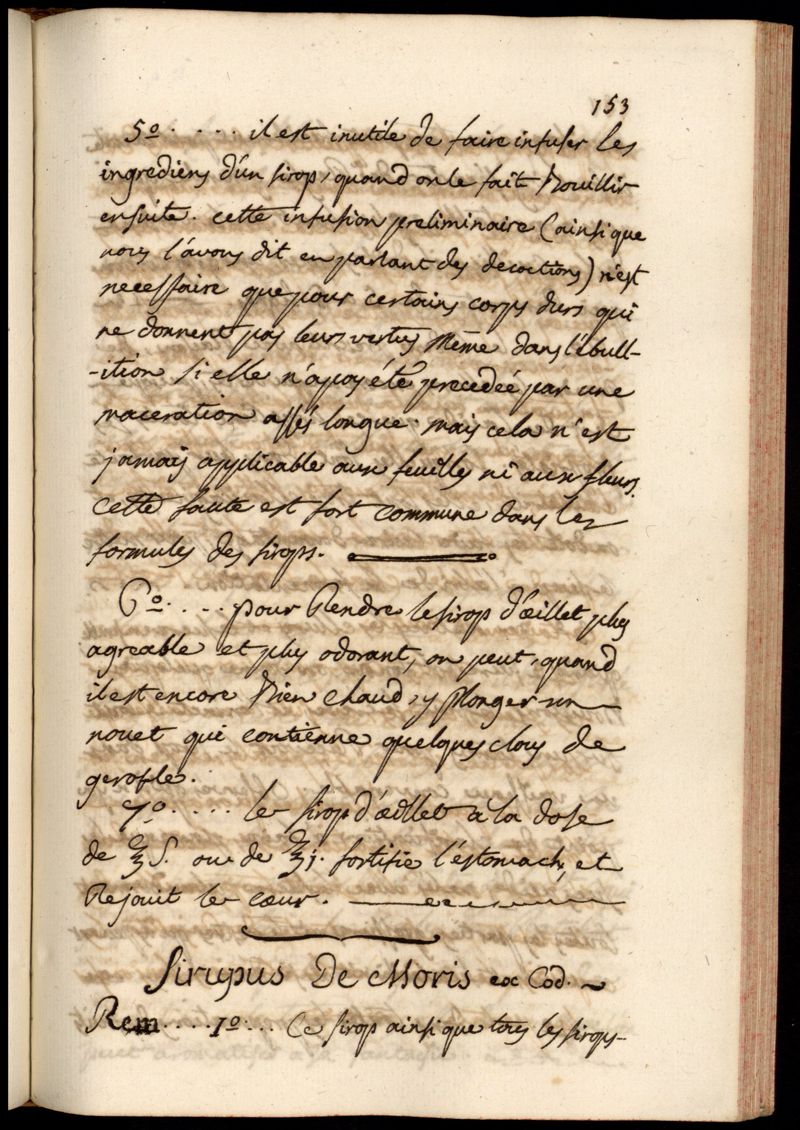 153
5º. . . . il est inutile de faire infuser les
ingrediens d'un sirop, quand on le fait Bouillir
ensuite. cette infusion preliminaire (ainsi que
nous l'avons dit en parlant des decoctions) n'est
necessaire que pour certains corps durs qui
ne donnent pas leurs vertus Même dans l'ébull-
-ition si elle n'a pas été precedeé par une
maceration assés longue. mais cela n'est
jamais applicable aux feuilles ni aux fleurs.
cette faute est fort commune dans les
formules des sirops.
6º. . . . pour Rendre le sirop d'œillet plus
agreable et plus odorant, on peut, quand
il est encore Bien chaud, y plonger un
nouet qui contienne quelques clous de
gerofle.
7º. . . . le sirop d'œillet a la dose
de ℥ S. ou de ℥ j. fortifie l'estomach, et
Rejouit le cœur.
Sirupus De Moris ex Cod. ~
Rem . . . . 1º . . . Ce sirop ainsi que tous les sirops